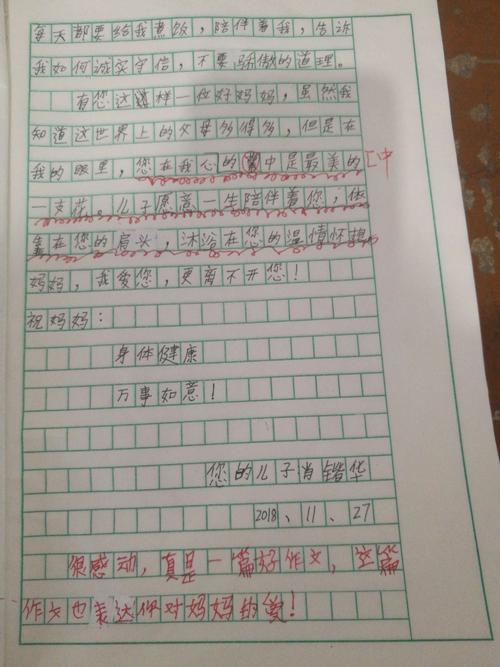 每天都要给我煮饭，陪伴着我，告诉
我如何诚实守信，不要骄傲的道理。
有您这样一位好妈妈，虽然我
知道这世界上的父母多得多，但是在
我的眼里，您在我心的中是最美的
中
一支花。儿子愿意一生陪伴着您，依
靠在您的肩头，沐浴在您的温情怀抱。
妈妈，我爱您，更离不开您！
祝妈妈：
身体健康
万事如意！
您的儿子肖锴华
2018、11、27
很感动，真是一篇好作文，这篇
作文也表达你对妈妈的爱！